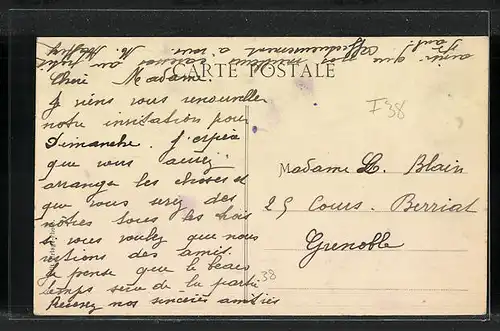 CARTE POSTALE
Chère Madame.
Je viens vous renouveller
notre invitation pour
Dimanche. J'espère
que vous aurez
arrangé les choses et
que vous serez des
nôtres tous les trois
si vous voulez que nous
restions des amis.
Je pense que le beau
temps sera de la partie
Recevez nos sincères amitiés
ainsi que nos meilleures caresses au petit
Paul. Affectueusement à vous M.
I 38
Madame Blain
25 Cours. Berriat
Grenoble
38